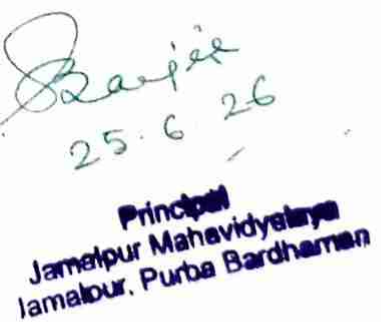 25.6.26
Principal
Jamalpur Mahavidyalaya
Jamalpur, Purba Bardhaman